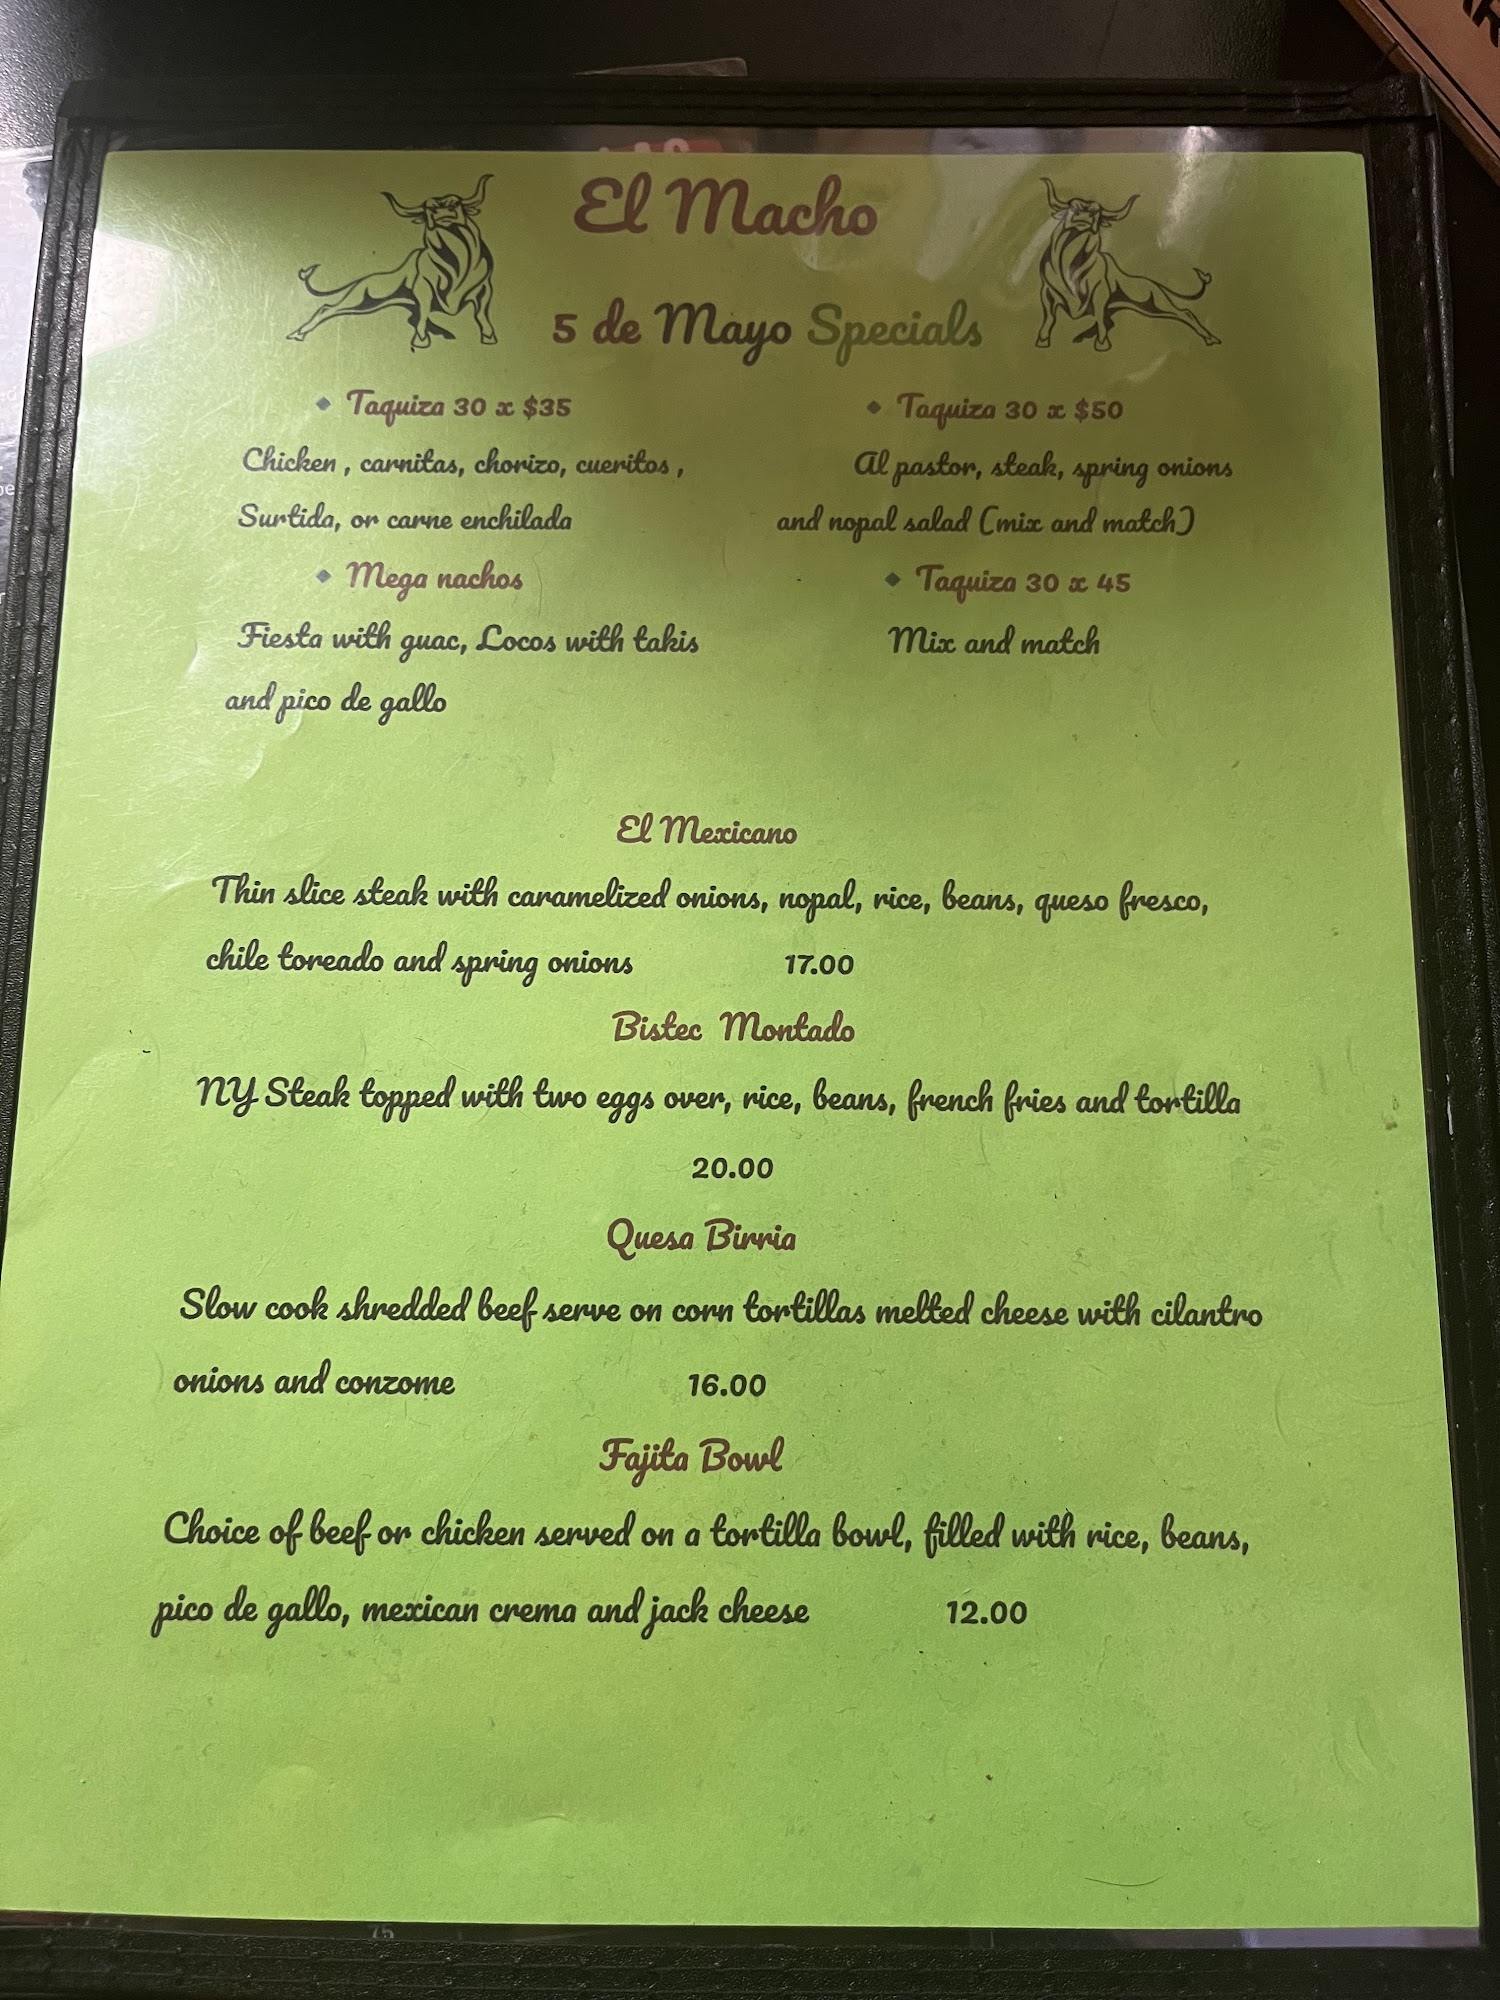 El Macho
5 de Mayo Specials
Taquiza 30 x $35
Chicken , carnitas, chorizo, cueritos ,
Surtida, or carne enchilada
Mega nachos
Fiesta with guac, Locos with takis
and pico de gallo
Taquiza 30 x $50
Al pastor, steak, spring onions
and nopal salad (mix and match)
Taquiza 30 x 45
Mix and match
El Mexicano
Thin slice steak with caramelized onions, nopal, rice, beans, queso fresco,
chile toreado and spring onions 17.00
Bistec Montado
NY Steak topped with two eggs over, rice, beans, french fries and tortilla
20.00
Quesa Birria
Slow cook shredded beef serve on corn tortillas melted cheese with cilantro
onions and conzome 16.00
Fajita Bowl
Choice of beef or chicken served on a tortilla bowl, filled with rice, beans,
pico de gallo, mexican crema and jack cheese 12.00